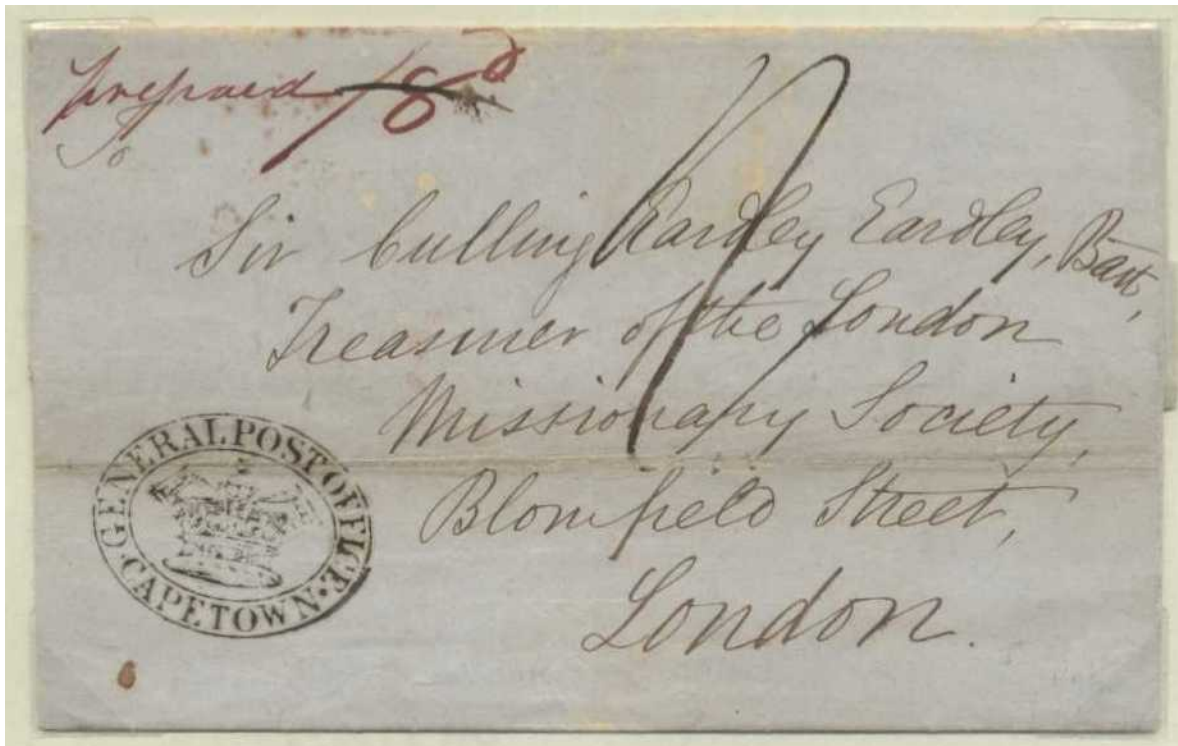 Prepaid /8d
To
Sir Culling Eardley Eardley, Bart,
Treasurer of the London
Missionary Society,
Blomfield Street,
London.
GENERAL POST OFFICE
CAPETOWN